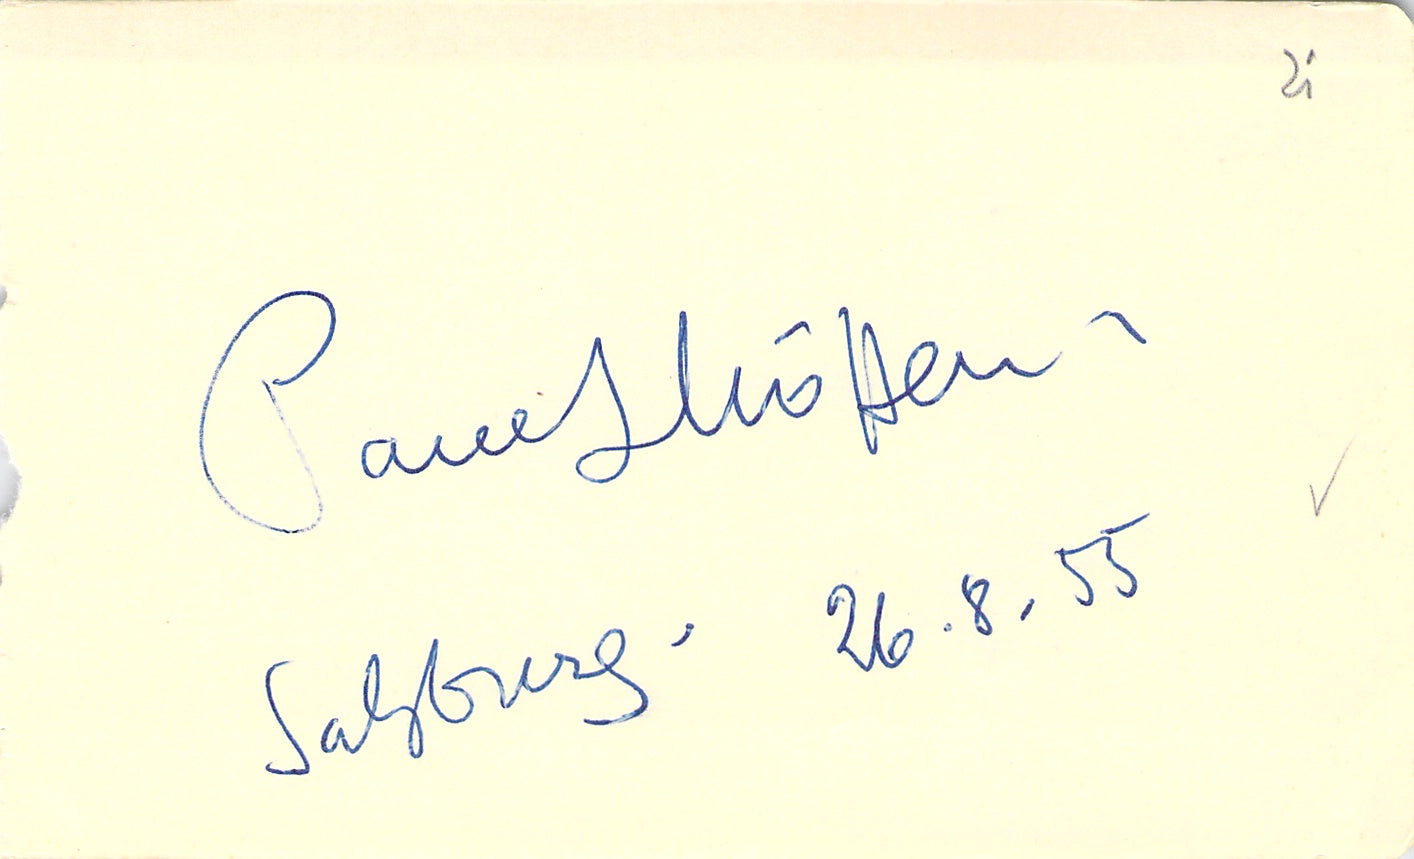 Paul Schöffler
Salzburg. 26.8.55